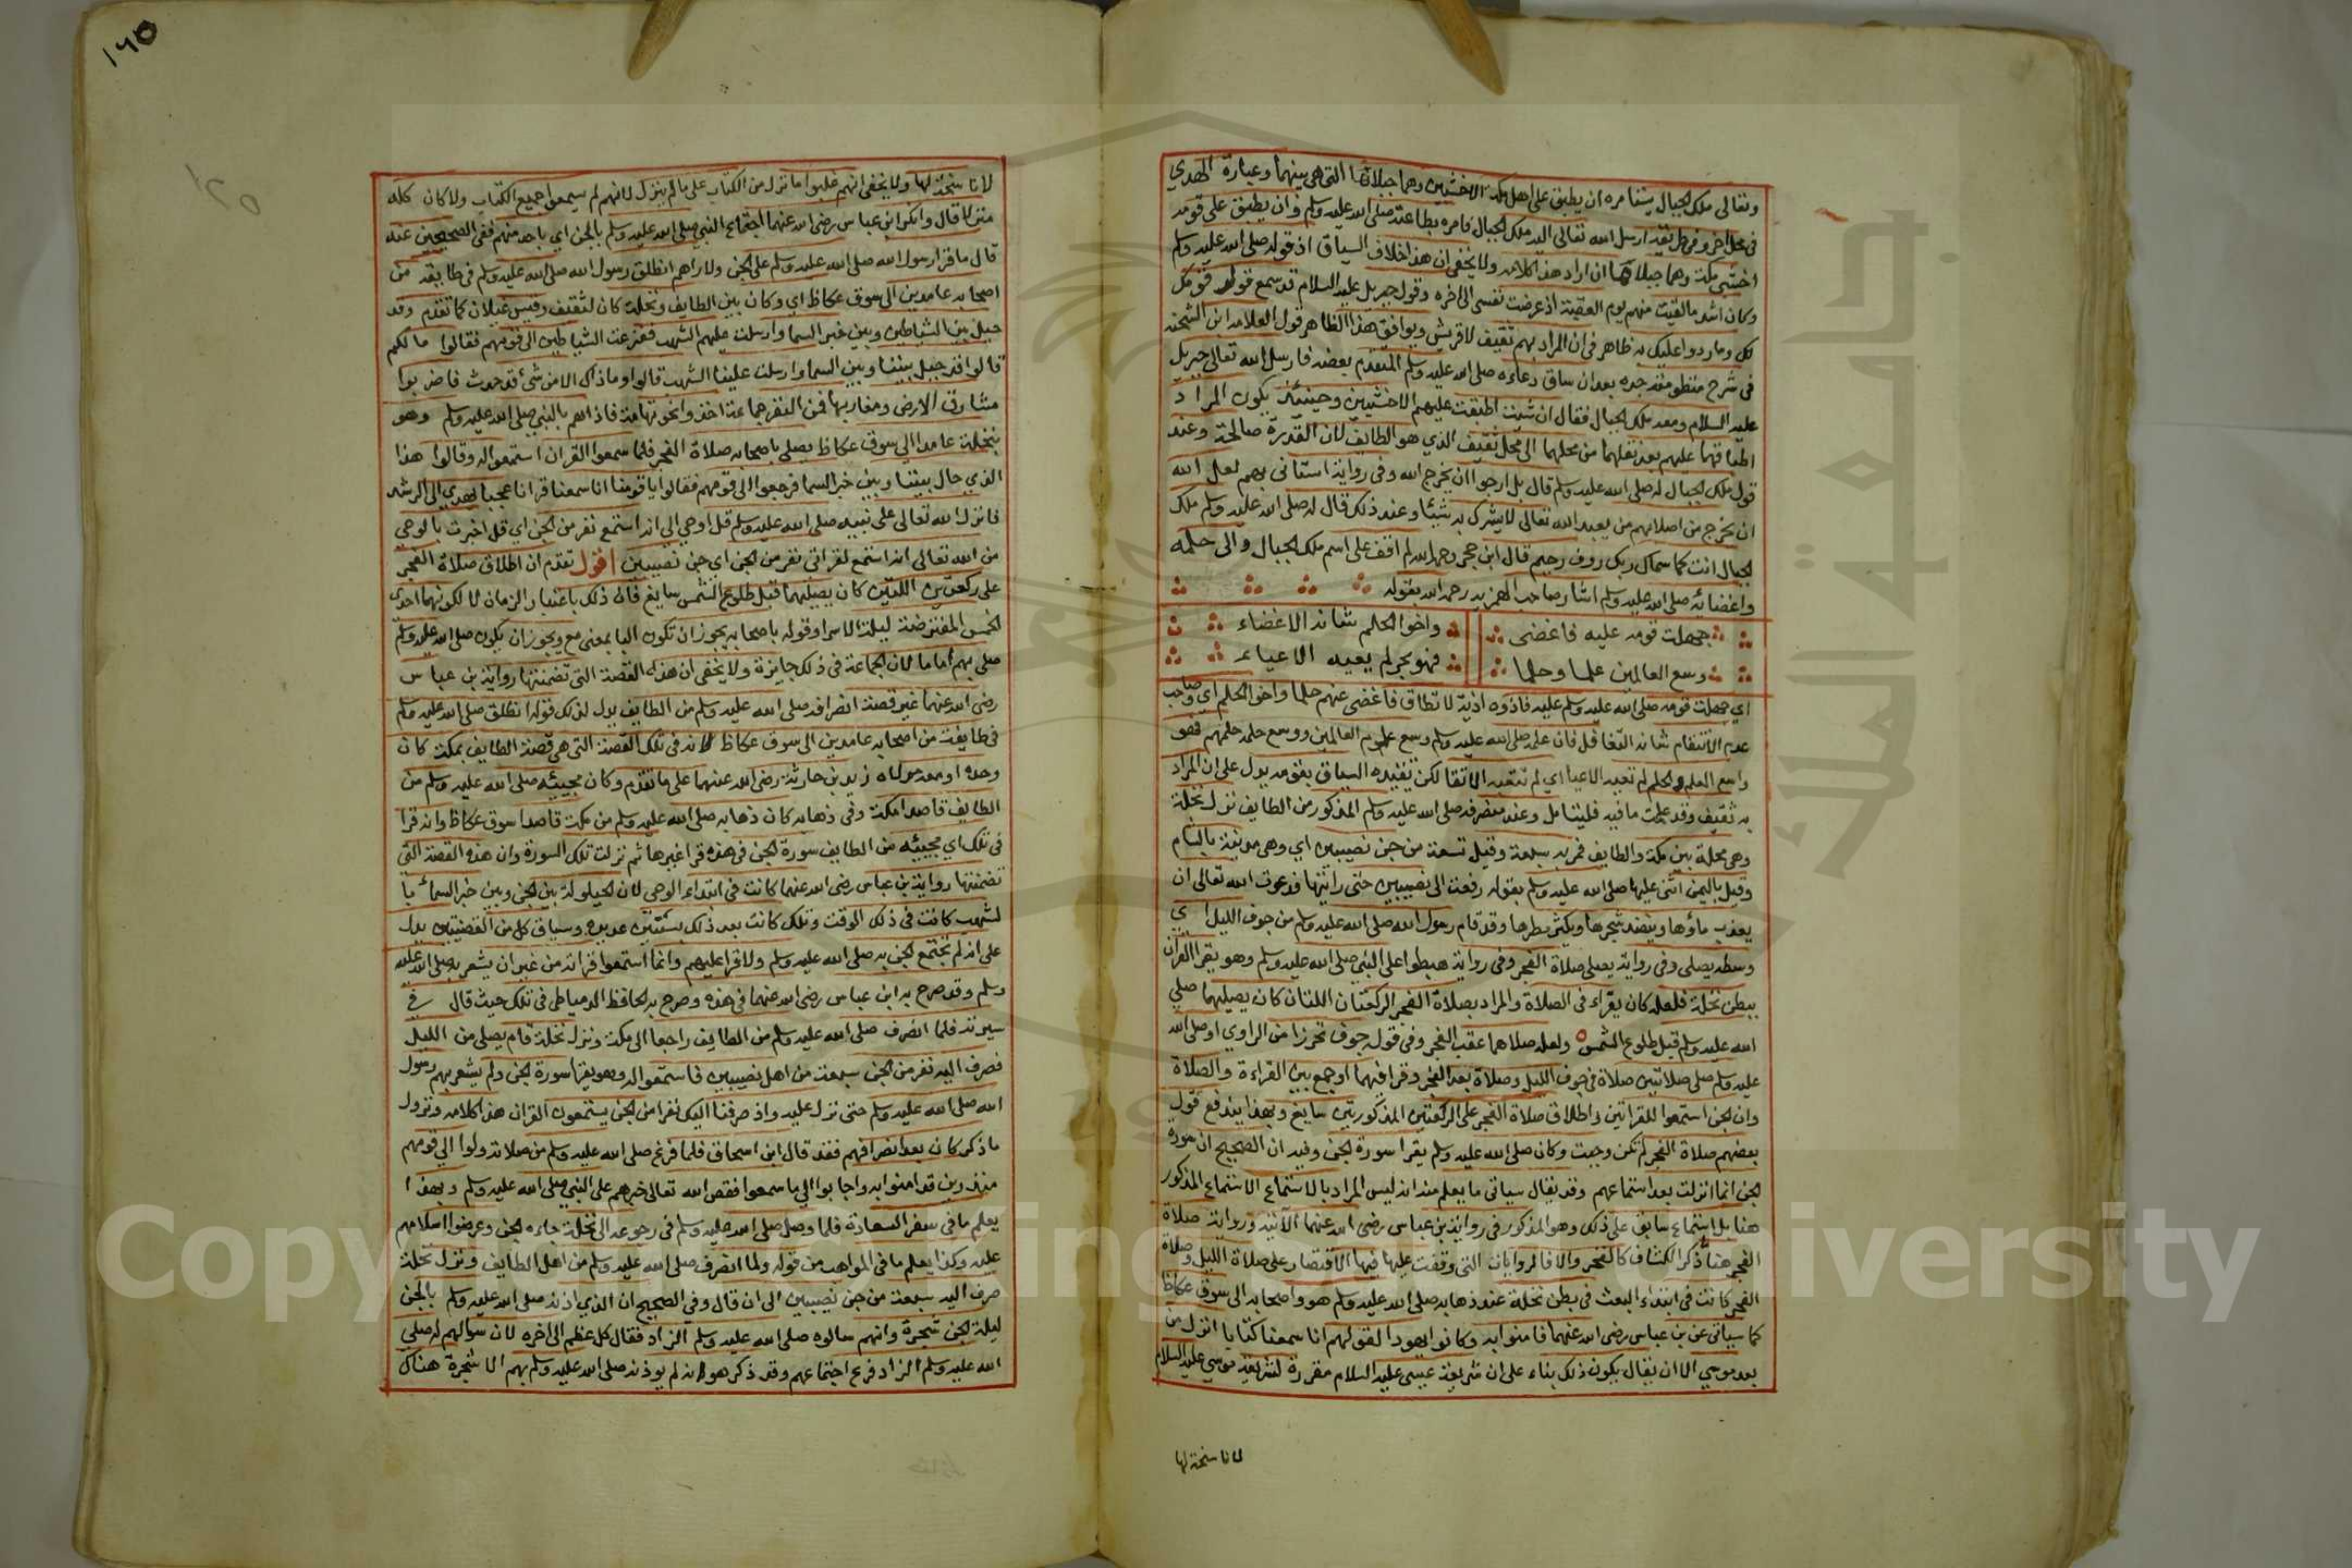 وتعالى ملك الجبال يشفا مره ان يطبق على اهل مكة الاخشبين وهما جبلاتها التي هي بينهما وعبارة الهدي
في محل اخر وفي طريقه ارسل الله تعالى اليه ملك الجبال فامره بطاعته صلى الله عليه وسلم وان يطبق على قومه
اخشبي مكة وهما جبلاتها ان اراد هذا كلامه ولا يخفى ان هذا خلاف السياق اذ قوله صلى الله عليه وسلم
وكان اشد ما لقيت منهم يوم العقبة اذ عرضت نفسي الى اخره وقول جبريل عليه السلام قد سمع قول قومك
لك وما ردوا عليك به ظاهر في ان المراد بهم ثقيف لا قريش ويوافق هذا الظاهر قول العلامة ابن الشحنة
في شرح منظومة جده بعد ان ساق دعاءه صلى الله عليه وسلم المتقدم بعضه فارسل الله تعالى جبريل
عليه السلام ومعه ملك الجبال فقال ان شئت اطبقت عليهم الاخشبين وحينئذ يكون المراد
اطباقهما عليهم بعد نقلهما من محلهما الى محل ثقيف الذي هو الطايف لان القدرة صالحة وعند
قول ملك الجبال له صلى الله عليه وسلم قال بل ارجوا ان يخرج الله وفي رواية استاني بهم لعل الله
ان يخرج من اصلابهم من يعبد الله تعالى لا يشرك به شيئا وعند ذلك قال له صلى الله عليه وسلم ملك
الجبال انت كما سماك ربك روف رحيم قال ابن حجر رحمه الله لم اقف على اسم ملك الجبال والى حلمه
واغضائه صلى الله عليه وسلم اشار صاحب الهمزيه رحمه الله بقوله
جهلت قومه عليه فاغضى واخوا الحلم شانه الاغضاء
وسع العالمين علما وحلما فهو بحر لم يعيه الاعياء
اي جهلت قومه صلى الله عليه وسلم عليه فاذوه اذية لا تطاق فاغضى عنهم حلما واخوا الحلم اي وصاحب
عدم الانتقام شانه التغافل فان علمه صلى الله عليه وسلم وسع علوم العالمين ووسع حلمه حلمهم فهو
واسع العلم والحلم لم تعيه الاعيا اي لم تتعبه الاتقا لكن تقييده السياق بقومه يدل على ان المراد
به ثقيف وقد علمت ما فيه فليتامل وعند منصرفه صلى الله عليه وسلم المذكور من الطايف نزل نخلة
وهي محلة بين مكة والطايف فمر به سبعة وقيل تسعة من جن نصيبين اي وهي مدينة بالشام
وقيل باليمن اثنى عليها صلى الله عليه وسلم بقوله رفعت الى نصيبين حتى رايتها فدعوت الله تعالى ان
يعذب ماؤها وينضد شجرها ويكثر مطرها وقد قام رسول الله صلى الله عليه وسلم من جوف الليل اي
وسطه يصلي وفي رواية يصلي صلاة الفجر وفي رواية هبطوا على النبي صلى الله عليه وسلم وهو يقرا القران
ببطن نخلة فلعله كان يقراء في الصلاة والمراد بصلاة الفجر الركعتان اللتان كان يصليهما صلي
الله عليه وسلم قبل طلوع الشمس ولعله صلاهما عقب الفجر وفي قوله جوف تحرزا من الراوي او صلى الله
عليه وسلم صلى صلاتين صلاة في جوف الليل وصلاة بعد الفجر وقرا فيهما او جمع بين القراءة والصلاة
وان الجن استمعوا للقراتين واطلاق صلاة الفجر على الركعتين المذكورتين سايغ وبهذا يندفع قول
بعضهم صلاة الفجر لم تكن وجبت وكان صلى الله عليه وسلم يقرا سورة الجن وفيه ان الصحيح ان سورة
الجن انما انزلت بعد استماعهم وقد يقال سياتي ما يعلم منه انه ليس المراد بالاستماع الاستماع المذكور
هنا بل استماع سابق على ذلك وهو المذكور في رواية بن عباس رضي الله عنهما الاتية ورواية صلاة
الفجر هنا ذكر الكشاف كالفخر والا فالروايات التي وقفت عليها فيها الاقتصار على صلاة الليل وصلاة
الفجر كانت في ابتداء البعث في بطن نخلة عند ذهابه صلى الله عليه وسلم هو واصحابه الى سوق عكاظ
كما سياتي عن بن عباس رضي الله عنهما فامنوا به وكانوا يهودا لقولهم انا سمعنا كتابا انزل من
بعد موسي الا ان يقال يكون ذلك بناء على ان شريعة عيسى عليه السلام مقررة لشريعة موسي عليه السلام
لانا سخة لها
١٦٥
لانا سخة لها ولا يخفى انهم غلبوا ما نزل من الكتاب على ما لم ينزل لانهم لم يسمعوا جميع الكتاب ولا كان كله
منزلا قال وانكر ابن عباس رضي الله عنهما اجتماع النبي صلى الله عليه وسلم بالجن اي باحد منهم ففي الصحيحين عنه
قال ما قرا رسول الله صلى الله عليه وسلم على الجن ولا راهم انطلق رسول الله صلى الله عليه وسلم في طايفة من
اصحابه عامدين الى سوق عكاظ اي وكان بين الطايف ونخلة كان لثقيف وقيس عيلان كما تقدم وقد
حيل بين الشياطين وبين خبر السما وارسلت عليهم الشهب ففزعت الشياطين الى قومهم فقالوا ما لكم
قالوا قد حيل بيننا وبين السما وارسلت علينا الشهب قالوا وما ذاك الا من شئ قد حدث فاضربوا
مشارق الارض ومغاربها فمن النفر جماعة اخذوا نحو تهامة فاذا هم بالنبي صلى الله عليه وسلم وهو
بنخلة عامدا الى سوق عكاظ يصلي باصحابه صلاة الفجر فلما سمعوا القران استمعوا له وقالوا هذا
الذي حال بيننا وبين خبر السما فرجعوا الى قومهم فقالوا يا قومنا انا سمعنا قرانا عجبا يهدي الى الرشد
فانزل الله تعالى على نبيه صلى الله عليه وسلم قل اوحي الي انه استمع نفر من الجن اي قل اخبرت بالوحي
من الله تعالى انه استمع لقراتي نفر من الجن اي جن نصيبين اقول تقدم ان اطلاق صلاة الفجر
على ركعتين اللتين كان يصليهما قبل طلوع الشمس سايغ فان ذلك باعتبار الزمان لا لكونهما احدى
الخمس المفترضة ليلة الاسرا وقوله باصحابه يجوز ان تكون البا بمعنى مع ويجوز ان يكون صلى الله عليه وسلم
صلى بهم اماما لان الجماعة في ذلك جايزة ولا يخفى ان هذه القصة التي تضمنتها رواية بن عباس
رضي الله عنهما غير قصة انصرافه صلى الله عليه وسلم من الطايف يدل لذلك قوله انطلق صلى الله عليه وسلم
في طايفة من اصحابه عامدين الى سوق عكاظ لانه في تلك القصة التي هي قصة الطايف بمكة كان
وحده او معه مولاه زيد بن حارثة رضي الله عنهما على ما تقدم وكان مجيئه صلى الله عليه وسلم من
الطايف قاصدا مكة وفي ذهابه كان ذهابه صلى الله عليه وسلم من مكة قاصدا سوق عكاظ وانه قرا
في تلك اي مجيئه من الطايف سورة الجن في هذه قرا غيرها ثم نزلت تلك السورة وان هذه القصة التي
تضمنتها رواية بن عباس رضي الله عنهما كانت في ابتداء الوحي لان الحيلولة بين الجن وبين خبر السماء با
لشهب كانت في ذلك الوقت وتلك كانت بعد ذلك بسنتين عديده وسياق كل من القصتين يدل
على انه لم تجتمع الجن به صلى الله عليه وسلم ولا قرا عليهم وانما استمعوا قراته من غير ان يشعر به صلى الله عليه
وسلم وقد صرح به ابن عباس رضي الله عنهما في هذه وصرح به الحافظ الدمياطي في تلك حيث قال في
سيرته فلما انصرف صلى الله عليه وسلم من الطايف راجعا الى مكة ونزل نخلة قام يصلي من الليل
فصرف اليه نفر من الجن سبعة من اهل نصيبين فاستمعوا له وهو يقرا سورة الجن ولم يشعر بهم رسول
الله صلى الله عليه وسلم حتى نزل عليه واذ صرفنا اليك نفرا من الجن يستمعون القران هذا كلامه ونزول
ما ذكر كان بعد انصرافهم فقد قال ابن اسحاق فلما فرغ صلى الله عليه وسلم من صلاته ولوا الى قومهم
منذرين قد امنوا به واجابوا الى ما سمعوا فقص الله تعالى خبرهم على النبي صلى الله عليه وسلم وبهذا
يعلم ما في سفر السعادة فلما وصل صلى الله عليه وسلم في رجوعه الى نخلة جاءه الجن وعرضوا اسلامهم
عليه وكذا يعلم ما في المواهب من قوله ولما انصرف صلى الله عليه وسلم من اهل الطايف ونزل نخلة
صرف اليه سبعة من جن نصيبين الى ان قال وفي الصحيح ان الذي اذنه صلى الله عليه وسلم بالجن
ليلة الجن شجرة وانهم سالوه صلى الله عليه وسلم الزاد فقال كل عظم الى اخره لان سوالهم له صلى
الله عليه وسلم الزاد فرع اجتماعهم وقد ذكر هو انه لم يوذنه صلى الله عليه وسلم بهم الا شجرة هناك